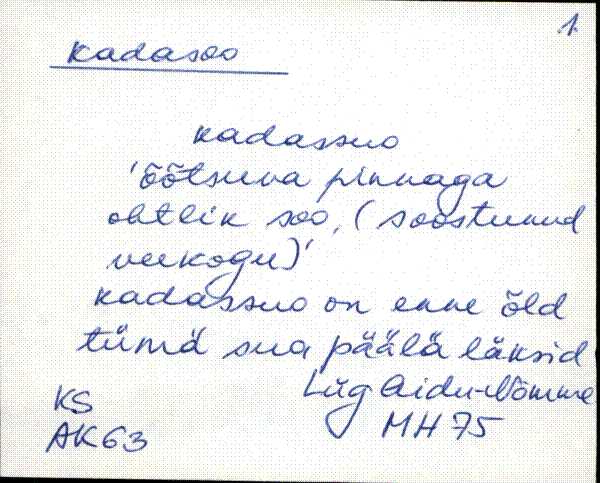 1.
kadasoo
kadassuo
'õõtsuva pinnaga
ohtlik soo, (soostunud
veekogu)'
kadassuo on enne õld
tümä sua päälä läksid
Lüg Aidu-Nõmme
KS MH 75
AK 63